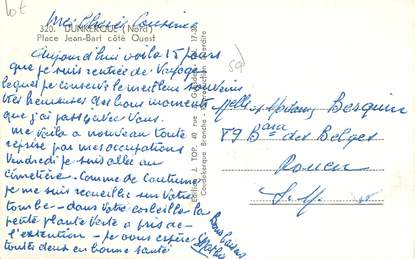 lot
Mes Chères Cousines
320. DUNKERQUE (Nord)
Place Jean-Bart côté Ouest
Aujourd'hui voilà 15 jours
que je suis rentrée de Voyage
duquel je conserve le meilleur souvenir
très heureuse des bons moments
que j'ai passés avec Vous.
me voilà a nouveau toute
reprise par mes occupations
Vendredi je suis allée au
Cimetière. Comme de Coutume
je me suis recueillie sur Votre
tombe - dans votre corbeille la
petite plante Verte a pris de
l'extention - Je vous espère
toutes deux en bonne santé
Bons baisers
Edition J. TOP, 40, rue
Coudekerque-Branche - Reproduction interdite
50
Melle et Madame Berquin
89 Bard des Belges
Rouen
S.-M.